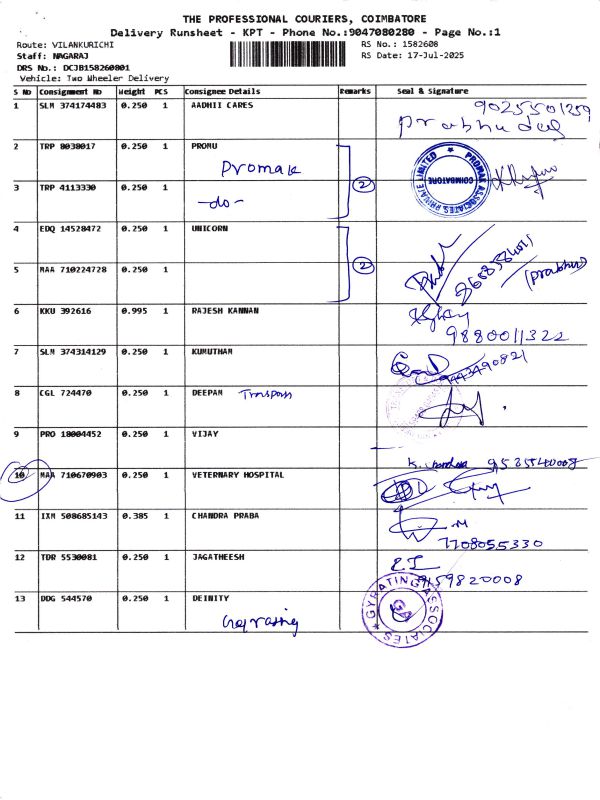 THE PROFESSIONAL COURIERS, COIMBATORE
Delivery Runsheet - KPT - Phone No.:9047080280 - Page No.:1
Route: VILANKURICHI
RS No.: 1582608
Staff: NAGARAJ
RS Date: 17-Jul-2025
DRS No.: DCJB158260801
Vehicle: Two Wheeler Delivery
S No Consignment No Weight PCS Consignee Details Remarks Seal & Signature
1 SLM 374174483 0.250 1 AADHII CARES 9025501259
2 TRP 8038017 0.250 1 PROMU
Promak
PROMAK ASSOCIATES PRIVATE LIMITED COIMBATORE
3 TRP 4113330 0.250 1 2
-do-
4 EDQ 14528472 0.250 1 UNICORN
5 MAA 710224728 0.250 1 2 (prabhu)
6 KKU 392616 0.995 1 RAJESH KANNAN
9880011322
7 SLM 374314129 0.250 1 KUMUTHAM
9443490821
8 CGL 724470 0.250 1 DEEPAM
9 PRO 18004452 0.250 1 VIJAY
9535400008
10 MAA 710670903 0.250 1 VETERNARY HOSPITAL
11 IXM 508685143 0.385 1 CHANDRA PRABA
7708055330
12 TDR 5530081 0.250 1 JAGATHEESH
9159820008
13 DDG 544570 0.250 1 DEINITY
Gyrating
GYRATING ASSOCIATES GA